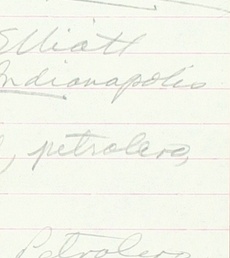 Elliott
Indianapolis
, petrolero,
Petrolero